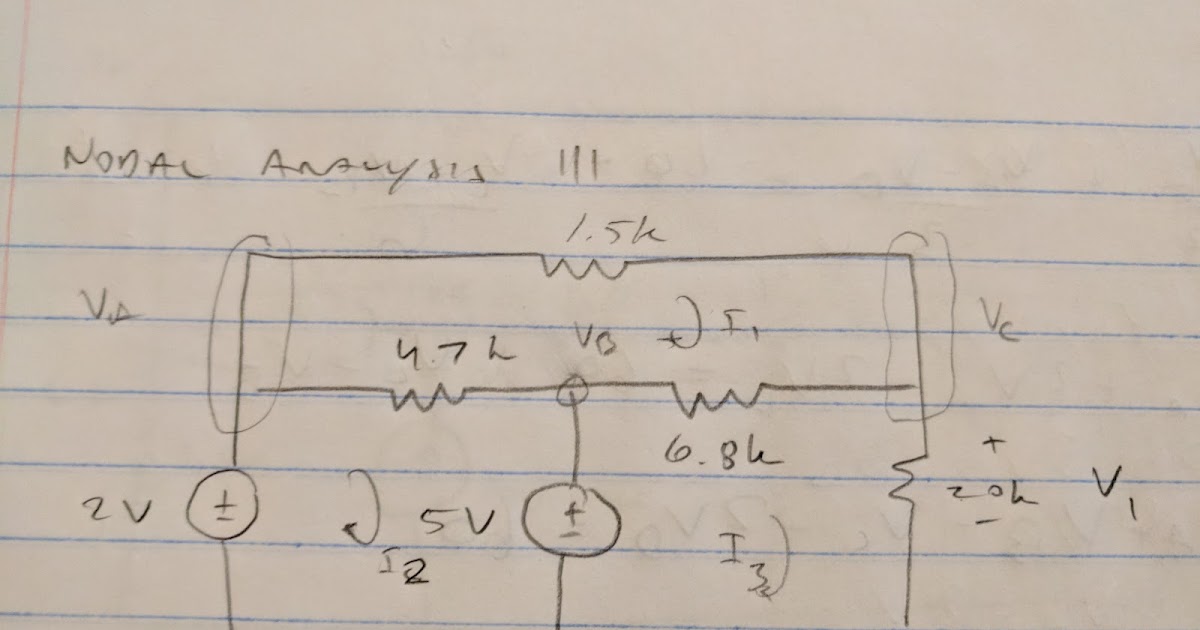 NODAL ANALYSIS III
1.5k
VA
4.7k
VB
I1
VC
6.8k
+
2V
±
I2
5V
±
I3
20k
V1
-